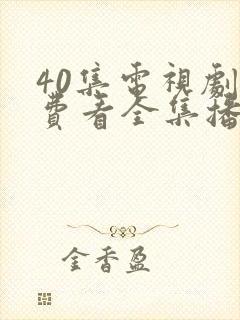 40集電視劇
費看全集播
金香盈